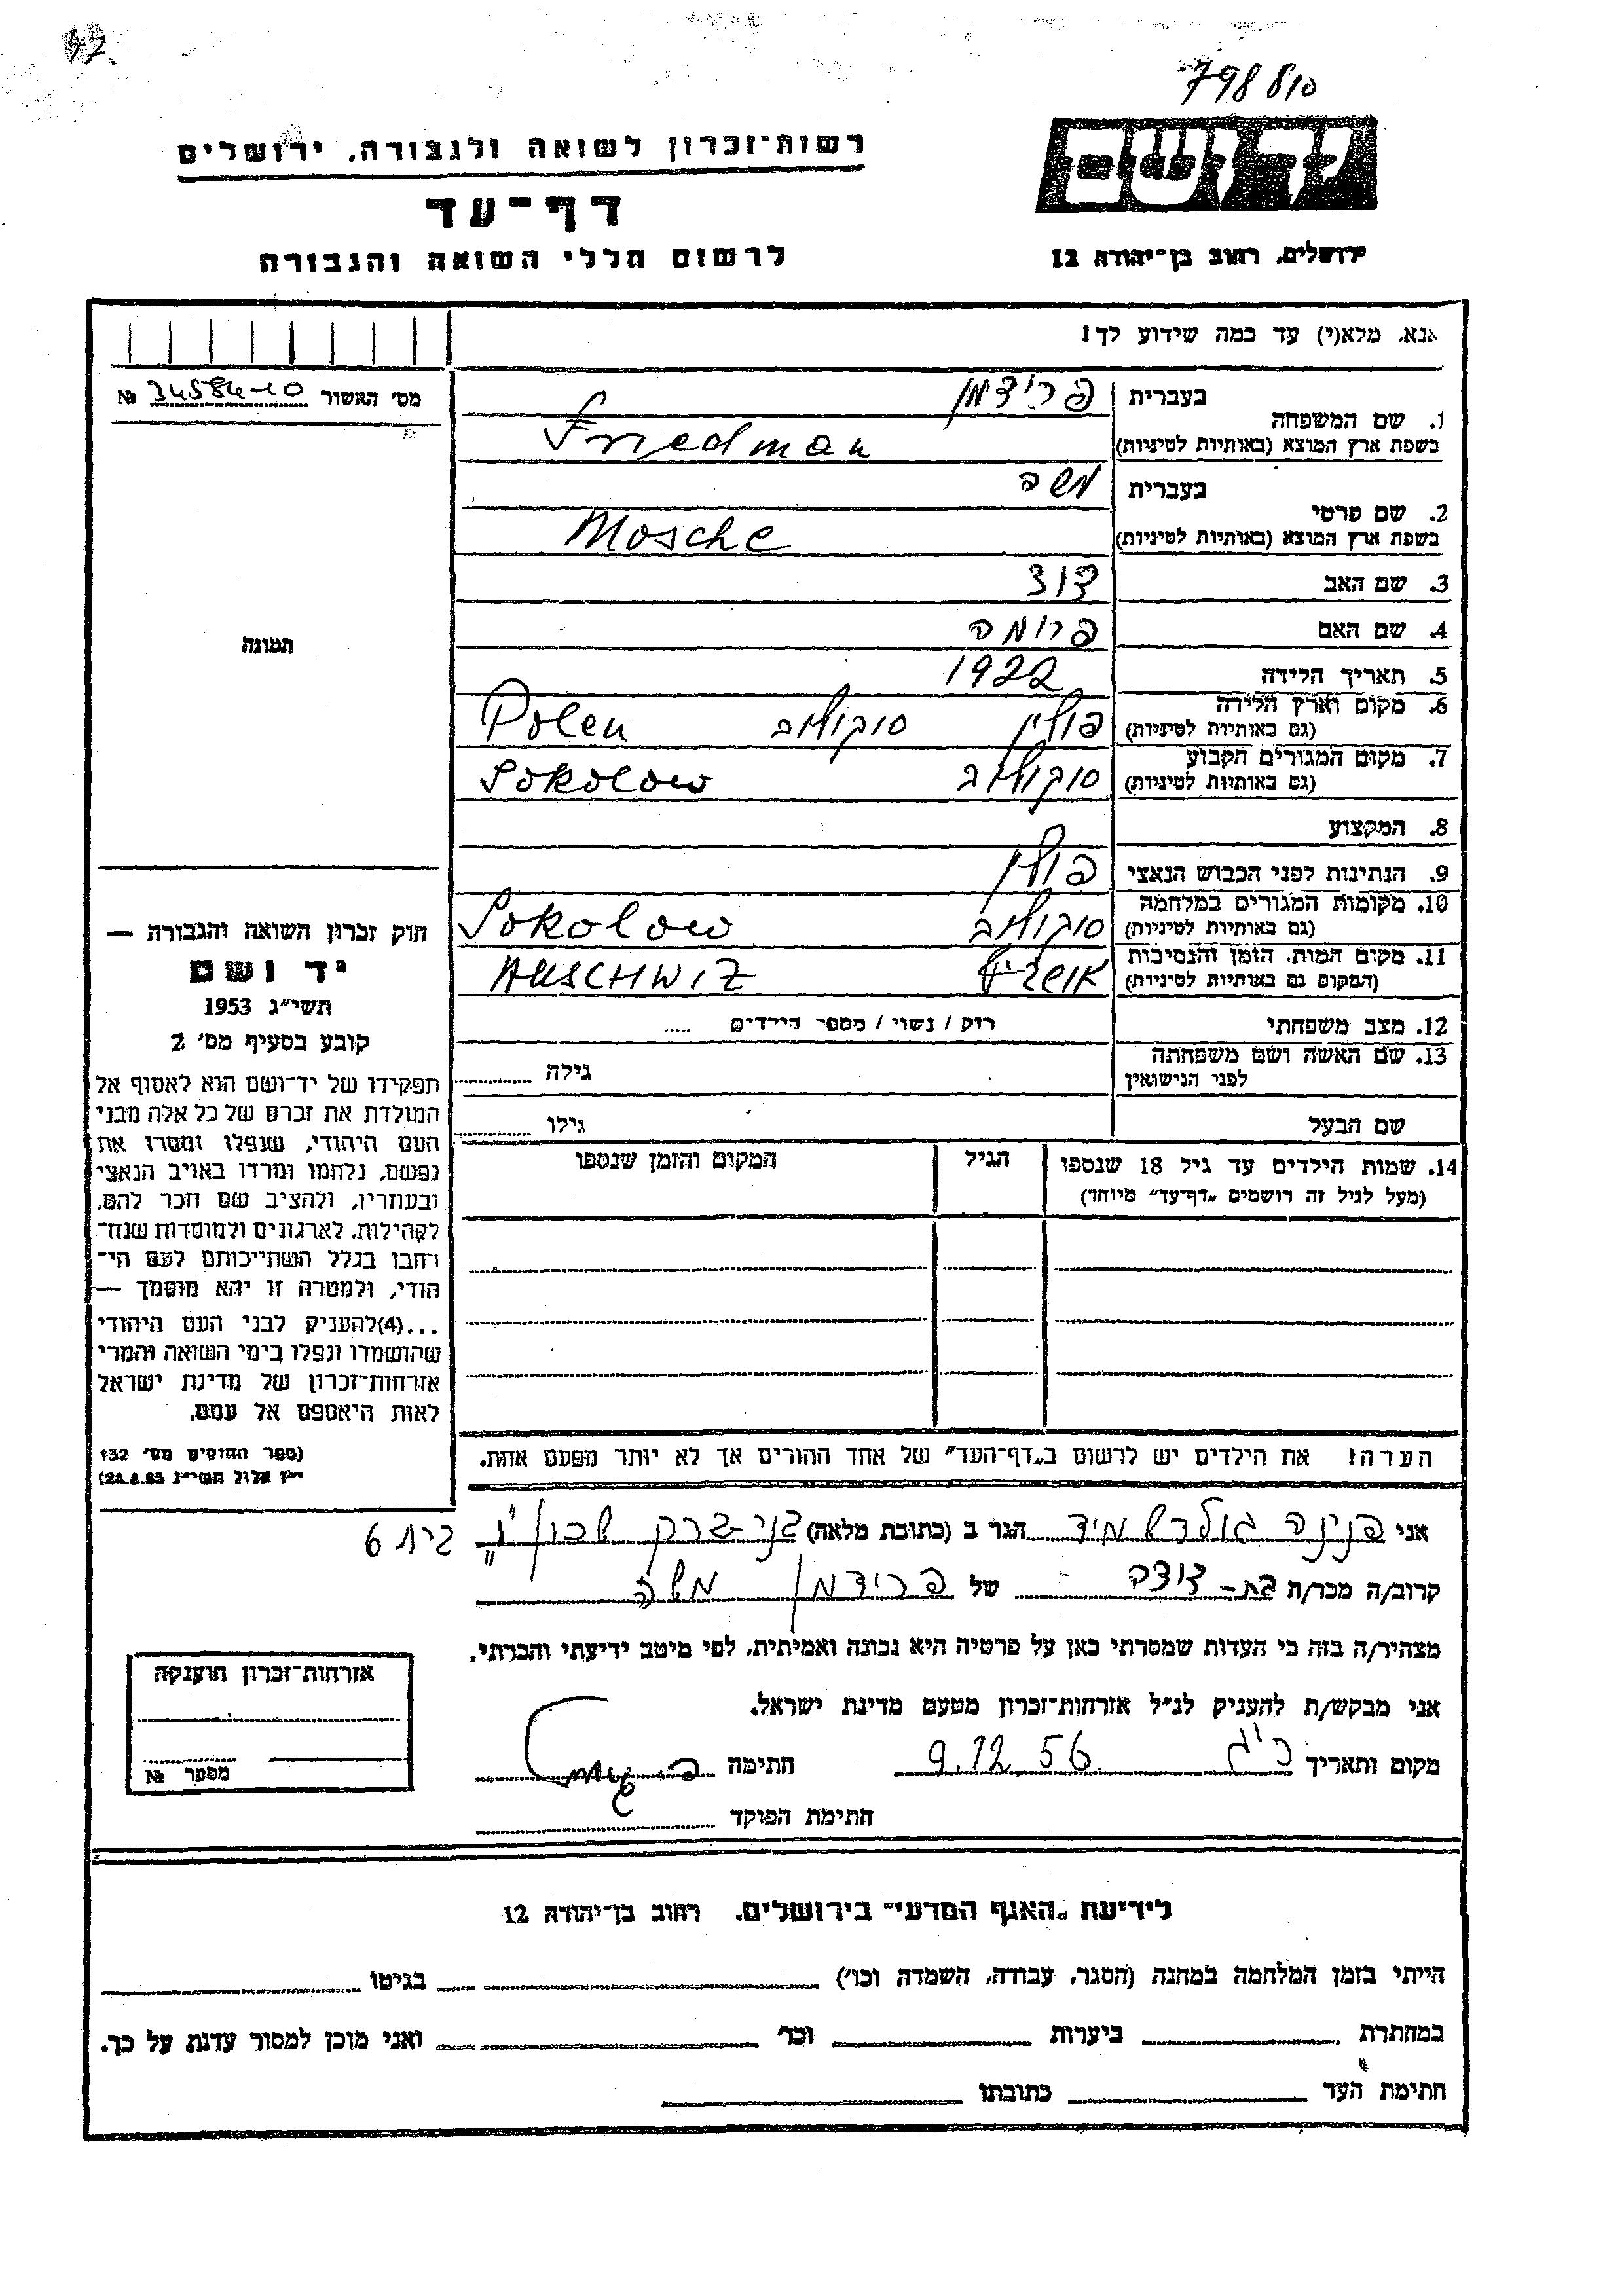 798810
רשות־זכרון לשואה ולגבורה, ירושלים
יד ושם
דף־עד
לרשום חללי השואה והגבורה
ירושלים, רחוב בן־יהודה 12
אנא, מלא(י) עד כמה שידוע לך!
מס׳ האשור № 34584-10
1. שם המשפחה
בעברית פרידמן
בשפת ארץ המוצא (באותיות לטיניות) Friedman
2. שם פרטי
בעברית משה
בשפת ארץ המוצא (באותיות לטיניות) Mosche
3. שם האב דוד
4. שם האם פרומה
5. תאריך הלידה 1922
6. מקום וארץ הלידה
(גם באותיות לטיניות) פולין סוקולוב Polen
7. מקום המגורים הקבוע
(גם באותיות לטיניות) סוקולוב Sokolow
8. המקצוע
9. הנתינות לפני הכבוש הנאצי פולין
10. מקומות המגורים במלחמה
(גם באותיות לטיניות) סוקולוב Sokolow
11. מקום המות, הזמן והנסיבות
(המקום גם באותיות לטיניות) AUSCHWIZ
12. מצב משפחתי רוק / נשוי / מספר הילדים .....
13. שם האשה ושם משפחתה
לפני הנישואין גילה
שם הבעל גילו
14. שמות הילדים עד גיל 18 שנספו הגיל המקום והזמן שנספו
(מעל לגיל זה רושמים „דף־עד״ מיוחד)
תמונה
חוק זכרון השואה והגבורה —
יד ושם
תשי״ג 1953
קובע בסעיף מס׳ 2
תפקידו של יד־ושם הוא לאסוף אל
המולדת את זכרם של כל אלה מבני
העם היהודי, שנפלו ומסרו את
נפשם, נלחמו ומרדו באויב הנאצי
ובעוזריו, ולהציב שם וזכר להם,
לקהילות, לארגונים ולמוסדות שנח־
רחבו בגלל השתייכותם לעם הי־
הודי, ולמטרה זו יהא מוסמך —
...(4)להעניק לבני העם היהודי
שהושמדו ונפלו בימי השואה והמרי
אזרחות־זכרון של מדינת ישראל
לאות היאספם אל עמם.
(ספר החוקים מס׳ 132
י״ז אלול תשי״ג 28.8.53)
הערה! את הילדים יש לרשום ב„דף־העד״ של אחד ההורים אך לא יותר מפעם אחת.
אני פנינה גולדשמיד הגר ב (כתובת מלאה) בני-ברק שכון "ו" בית 6
קרוב/ה מכר/ה בת-דודה של פרידמן משה
מצהיר/ה בזה כי העדות שמסרתי כאן על פרטיה היא נכונה ואמיתית, לפי מיטב ידיעתי והכרתי.
אני מבקש/ת להעניק לנ״ל אזרחות־זכרון מטעם מדינת ישראל.
מקום ותאריך 9.12.56 חתימה
חתימת הפוקד
אזרחות־זכרון הוענקה
מספר №
לידיעת „האגף המדעי״ בירושלים, רחוב בן־יהודה 12
הייתי בזמן המלחמה במחנה (הסגר, עבודה, השמדה וכו׳) בגיטו
במחתרת ביערות וכר׳ ואני מוכן למסור עדות על כך.
חתימת העד כתובתו